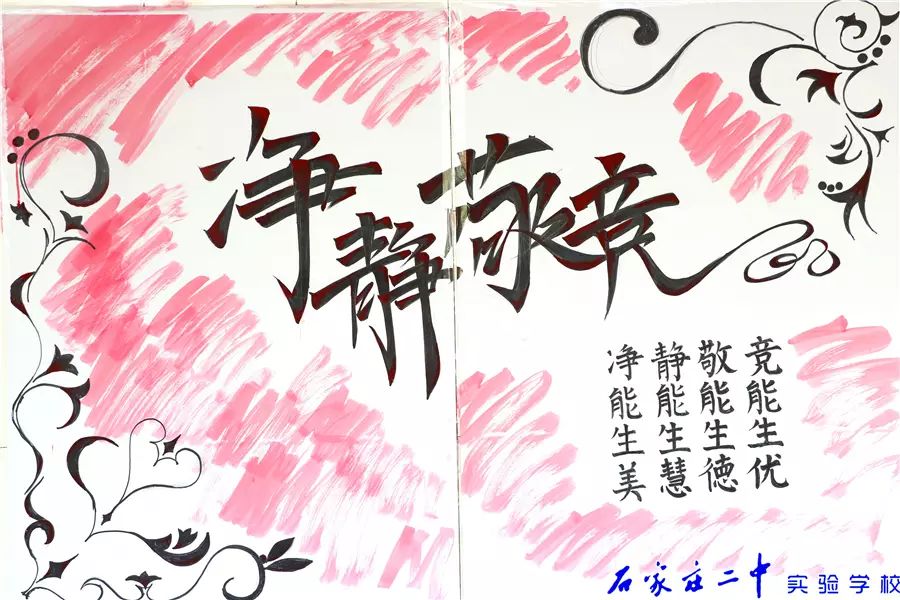 净静敬竞
净能生美
静能生慧
敬能生德
竞能生优
石家庄二中 实验学校